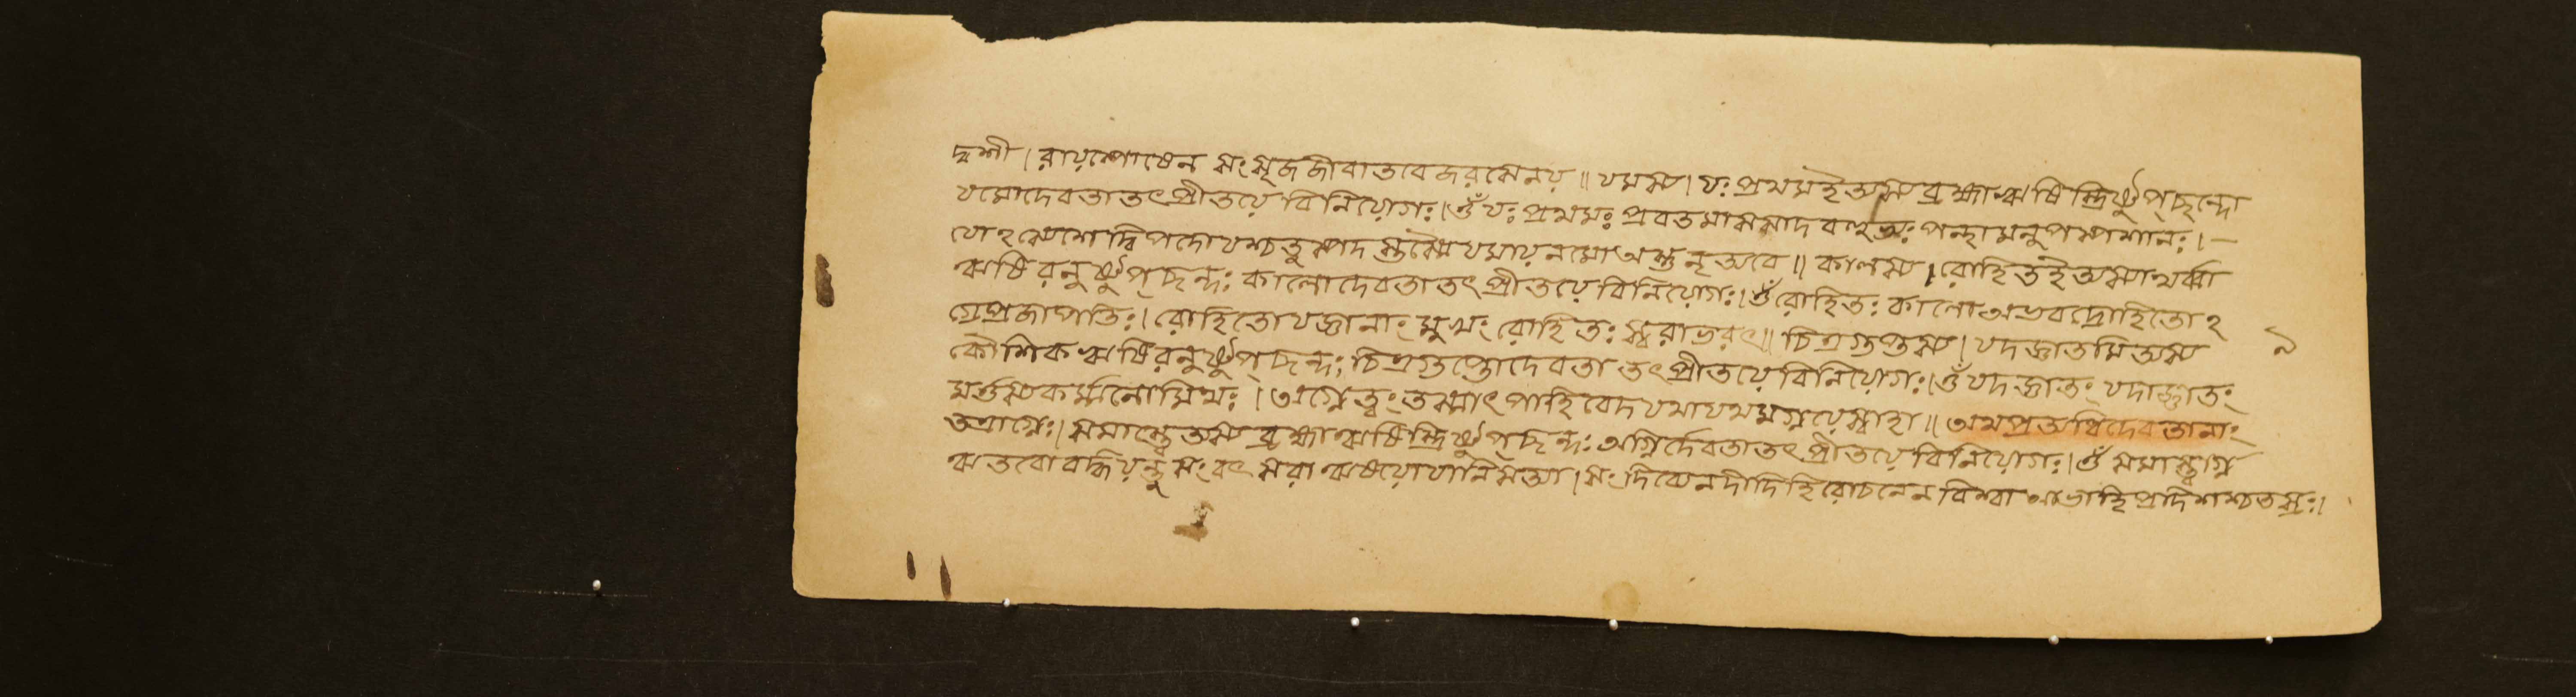 দ্মশী। রায়স্পোষেন সং সৃজ জীবাতবে জরসেনয়॥ যমস্য। যঃ প্রথমইত্যস্য ব্রহ্মাঋষিস্ত্রিষ্টুপ্ছন্দো
যমোদেবতা তৎপ্রীতয়ে বিনিয়োগঃ। ওঁ যঃ প্রথমঃ প্রবতমাসসাদ বহুভ্যঃ পন্থামনুপস্পশানঃ।—
যোঽস্যেশে দ্বিপদো যশ্চতুষ্পদ স্তস্মৈ যমায় নমো অস্তু মৃত্যবে॥ কালস্য। রোহিতইত্যস্যাথর্ব্বা
ঋষিরনুষ্টুপ্ছন্দঃ কালোদেবতা তৎ প্রীতয়ে বিনিয়োগঃ। ওঁ রোহিতঃ কালো অভবদ্রোহিতোঽ
গ্রেপ্রজাপতিঃ। রোহিতো যজ্ঞানাং মুখং রোহিতঃ স্বরাভরৎ॥ চিত্রগুপ্তস্য। যদজ্ঞাতমিত্যস্য
কৌশিক ঋষিরনুষ্টুপ্ছন্দঃ চিত্রগুপ্তোদেবতা তৎপ্রীতয়ে বিনিয়োগঃ। ওঁ যদজ্ঞাতং যদাজ্ঞাতং
মর্ত্তস্যকর্ম্মনোমিথঃ। অগ্নেত্বং তস্মাৎ পাহি বেদ যথাযথমগ্নয়েস্বাহা॥ অথপ্রত্যধিদেবতানাং
তত্রাগ্নেঃ। সমাস্ত্বেত্যস্য ব্রহ্মাঋষিস্ত্রিষ্টুপ্ছন্দঃ অগ্নির্দেবতা তৎ প্রীতয়ে বিনিয়োগঃ। ওঁ সমাস্ত্বাগ্ন
ঋতবো বর্দ্ধয়ন্তু সং বৎসরা ঋষয়ো যানি সত্যা। সং দিব্যেন দীদিহি রোচনেন বিশ্বা আভাহি প্রদিশশ্চতস্রঃ।
৯